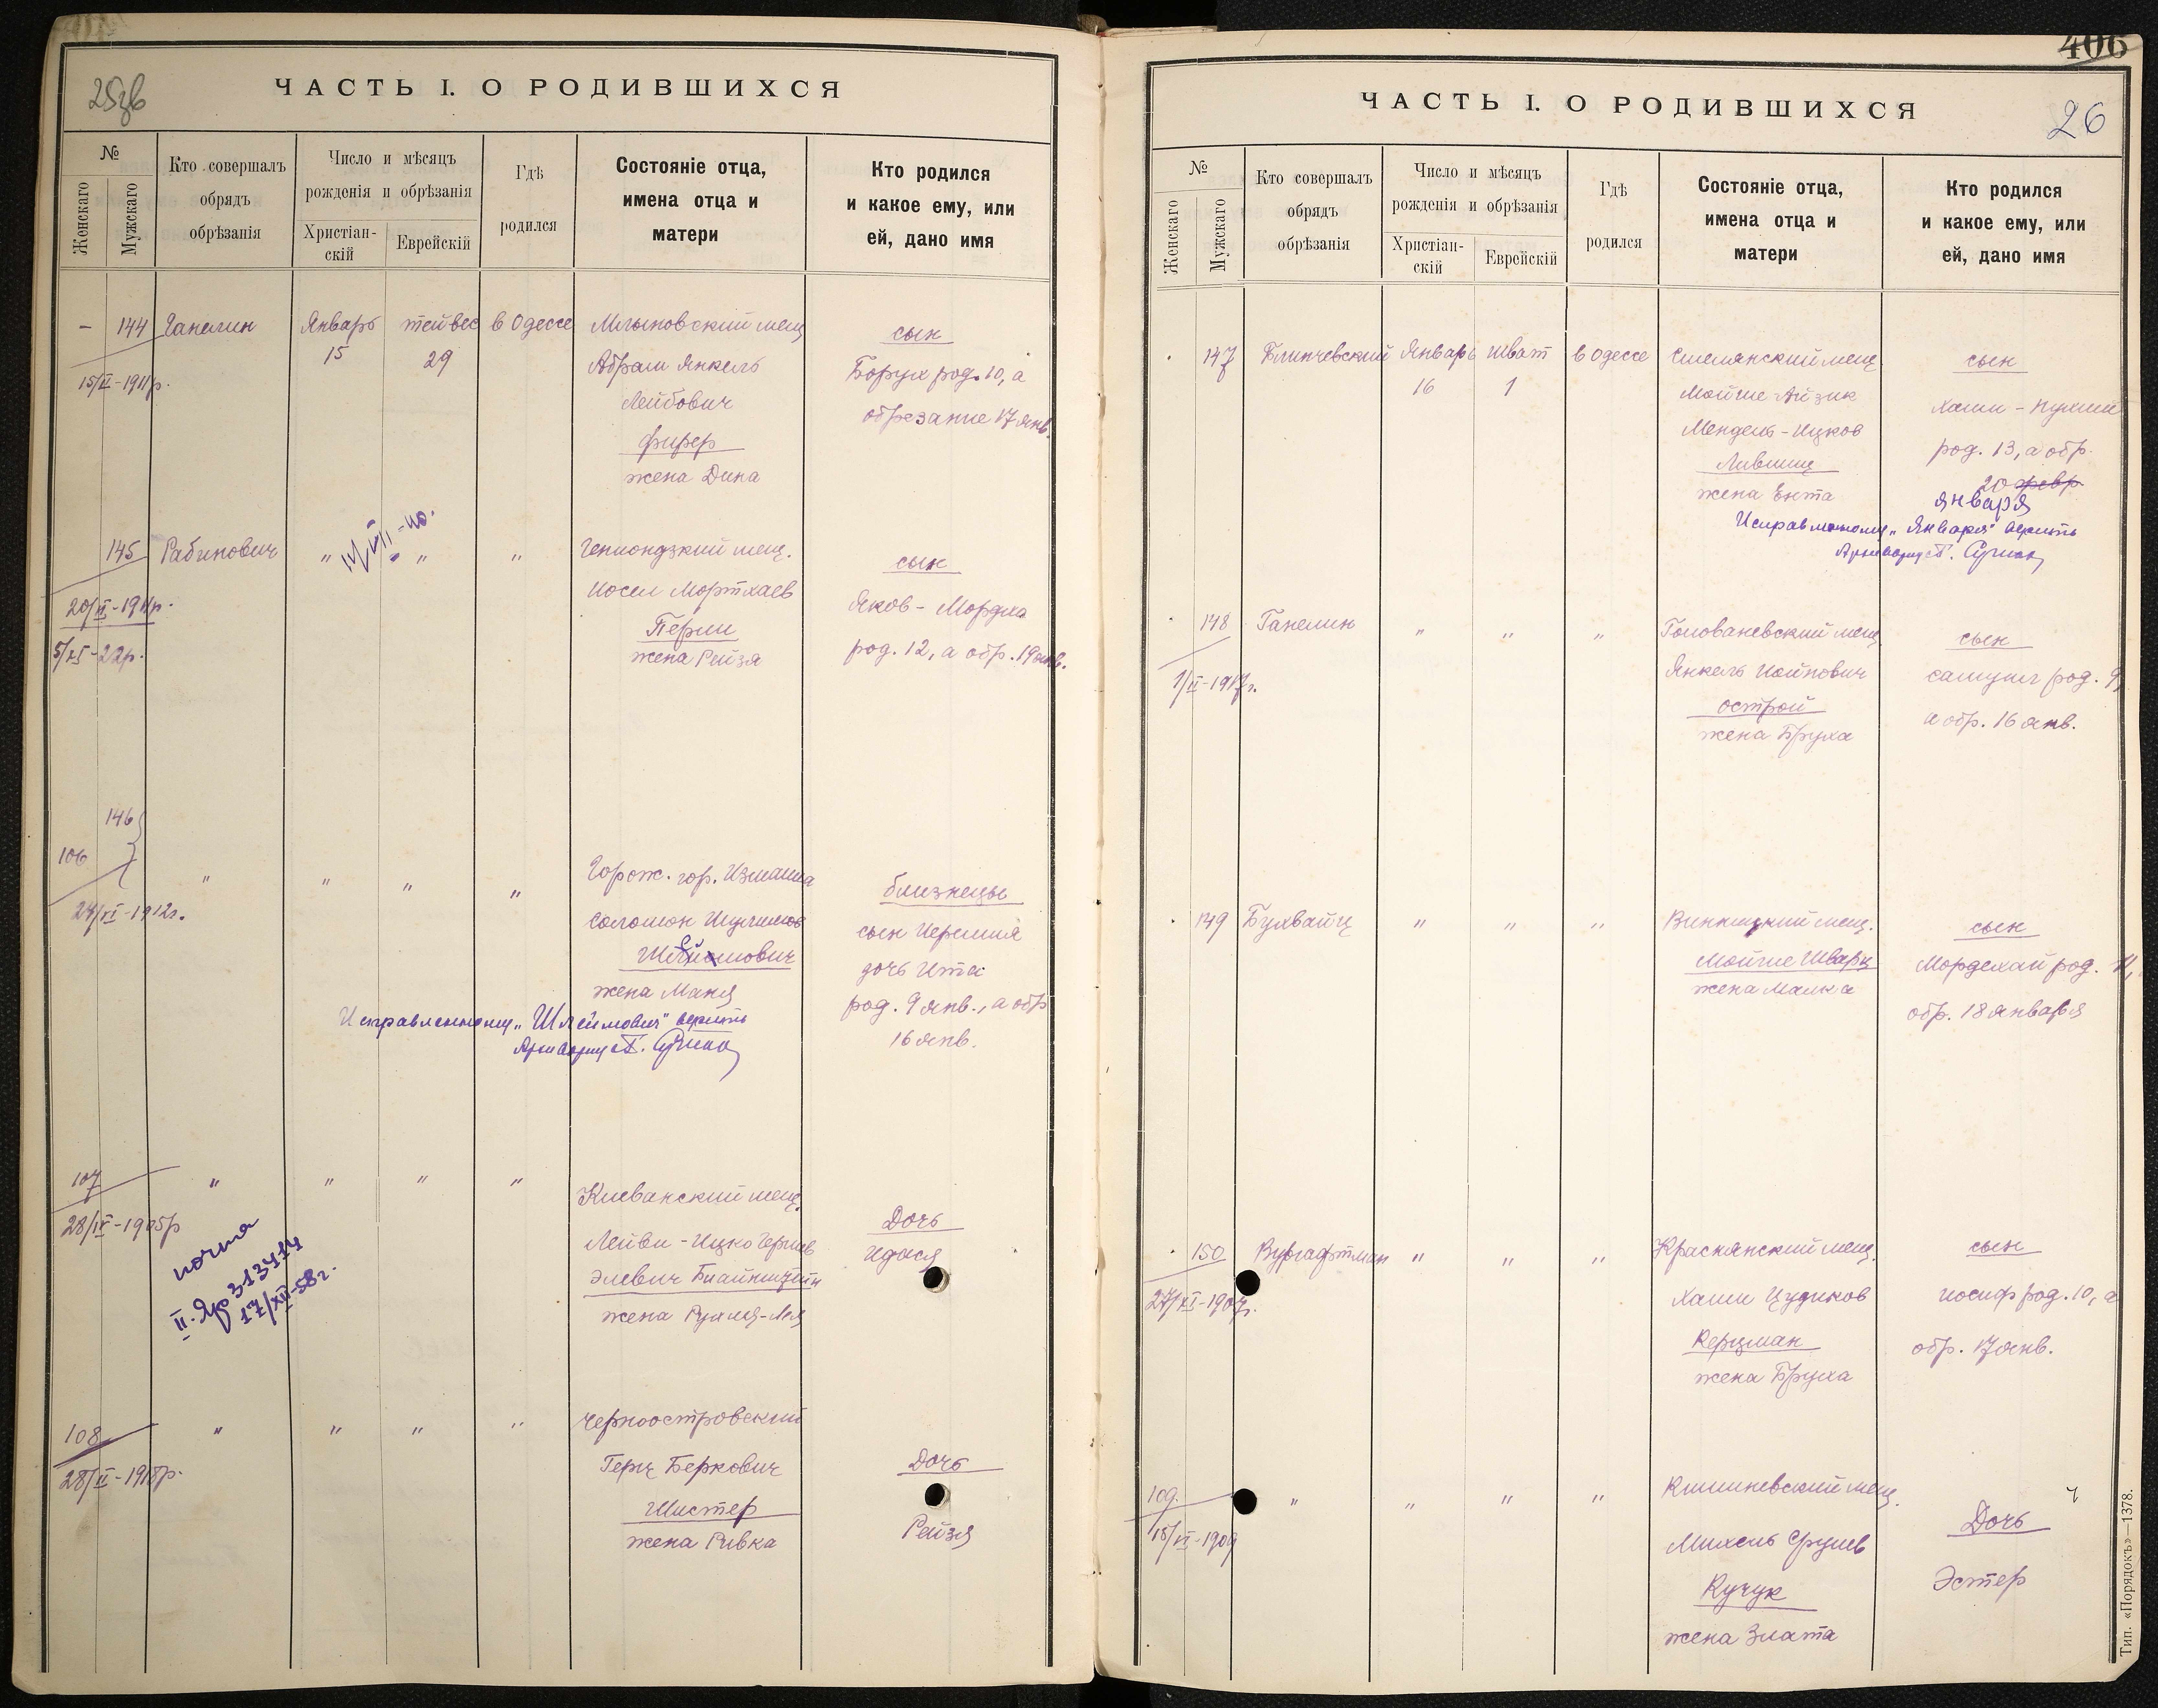 25зв
ЧАСТЬ I. О РОДИВШИХСЯ
№
Женскаго
Мужскаго
Кто совершалъ
обрядъ
обрѣзанія
Число и мѣсяцъ
рожденія и обрѣзанія
Христіан-
скій
Еврейскій
Гдѣ
родился
Состояніе отца,
имена отца и
матери
Кто родился
и какое ему, или
ей, дано имя
– 144 Ганелин Январь тейвес в Одессе Млыновский мещ
15 29
15/II-1911р.
Абрам Янкель
Лейбович
фирер
жена Дина
сын
Борух род. 10, а
обрезание 17 янв.
145 Рабинович " " "
20/II-1911р.
5/XI-22р.
мещ.
Иосел Мортхаев
Перин
жена Рейзя
сын
Яков - Мордха
род. 12, а обр. 19 янв.
146
106
" " " "
24/XI-1912г.
Горож. гор. Измаила
Соломон
жена Маня
близнецы
сын Иеремия
дочь Ита
род. 9 янв., а обр
16 янв.
Исправленному „Шлеймович" верить
107 " " " "
28/IV-1905р
почта
17/XII-58г.
Клеванский мещ.
Лейви - Ицко
жена Рухля-Лея
Дочь
Идася
108 " " " "
28/II-1918р.
Черноостровский
Герц Беркович
Шистер
жена Ривка
Дочь
Рейзя
406
26
ЧАСТЬ I. О РОДИВШИХСЯ
№
Женскаго
Мужскаго
Кто совершалъ
обрядъ
обрѣзанія
Число и мѣсяцъ
рожденія и обрѣзанія
Христіан-
скій
Еврейскій
Гдѣ
родился
Состояніе отца,
имена отца и
матери
Кто родился
и какое ему, или
ей, дано имя
147 Блинчевский Январь шват в Одессе Смелянский мещ.
16 1
Мойше Айзик
Мендель-Ицков
Лившиц
жена Ента
сын
род. 13, а обр.
20 февр
января
Исправленному „Января" верить
148 Ганелин " " "
1/II-1917г.
Голованевский мещ.
Янкель Иойнович
острой
жена Бруха
сын
самуил род. 9,
а обр. 16 янв.
149 Бухвайц " " "
Винницкий мещ.
Мойше Шварц
жена Малка
сын
Мордехай род. 11,
обр. 18 января
150 Вургафтман " " "
27/XI-1907г.
Краснянский мещ.
Хаим Цудиков
Керцман
жена Бруха
сын
иосиф род. 10, а
обр. 17 янв.
109. " " " "
15/VI-1909
Кишиневский мещ.
Михель Срулев
Кучук
жена Злата
Дочь
Эстер
Тип. «Порядокъ»—1378.